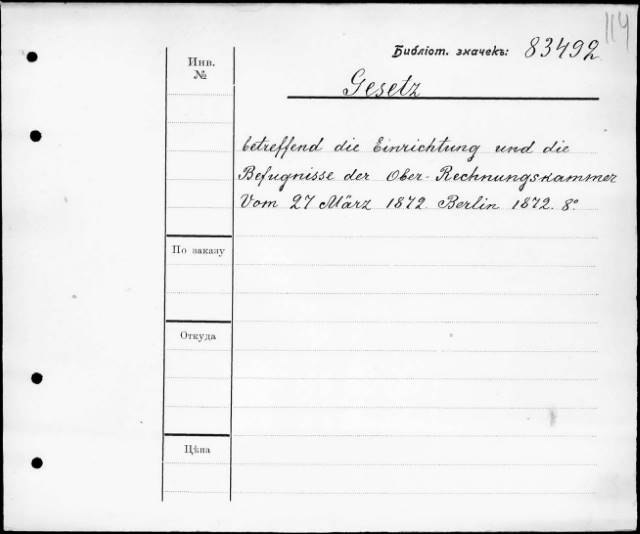 114
Библіот. значекъ: 83492
Инв.
№
Gesetz
betreffend die Einrichtung und die
Befugnisse der Ober-Rechnungskammer
Vom 27 März 1872. Berlin 1872. 8°.
По заказу
Откуда
Цѣна